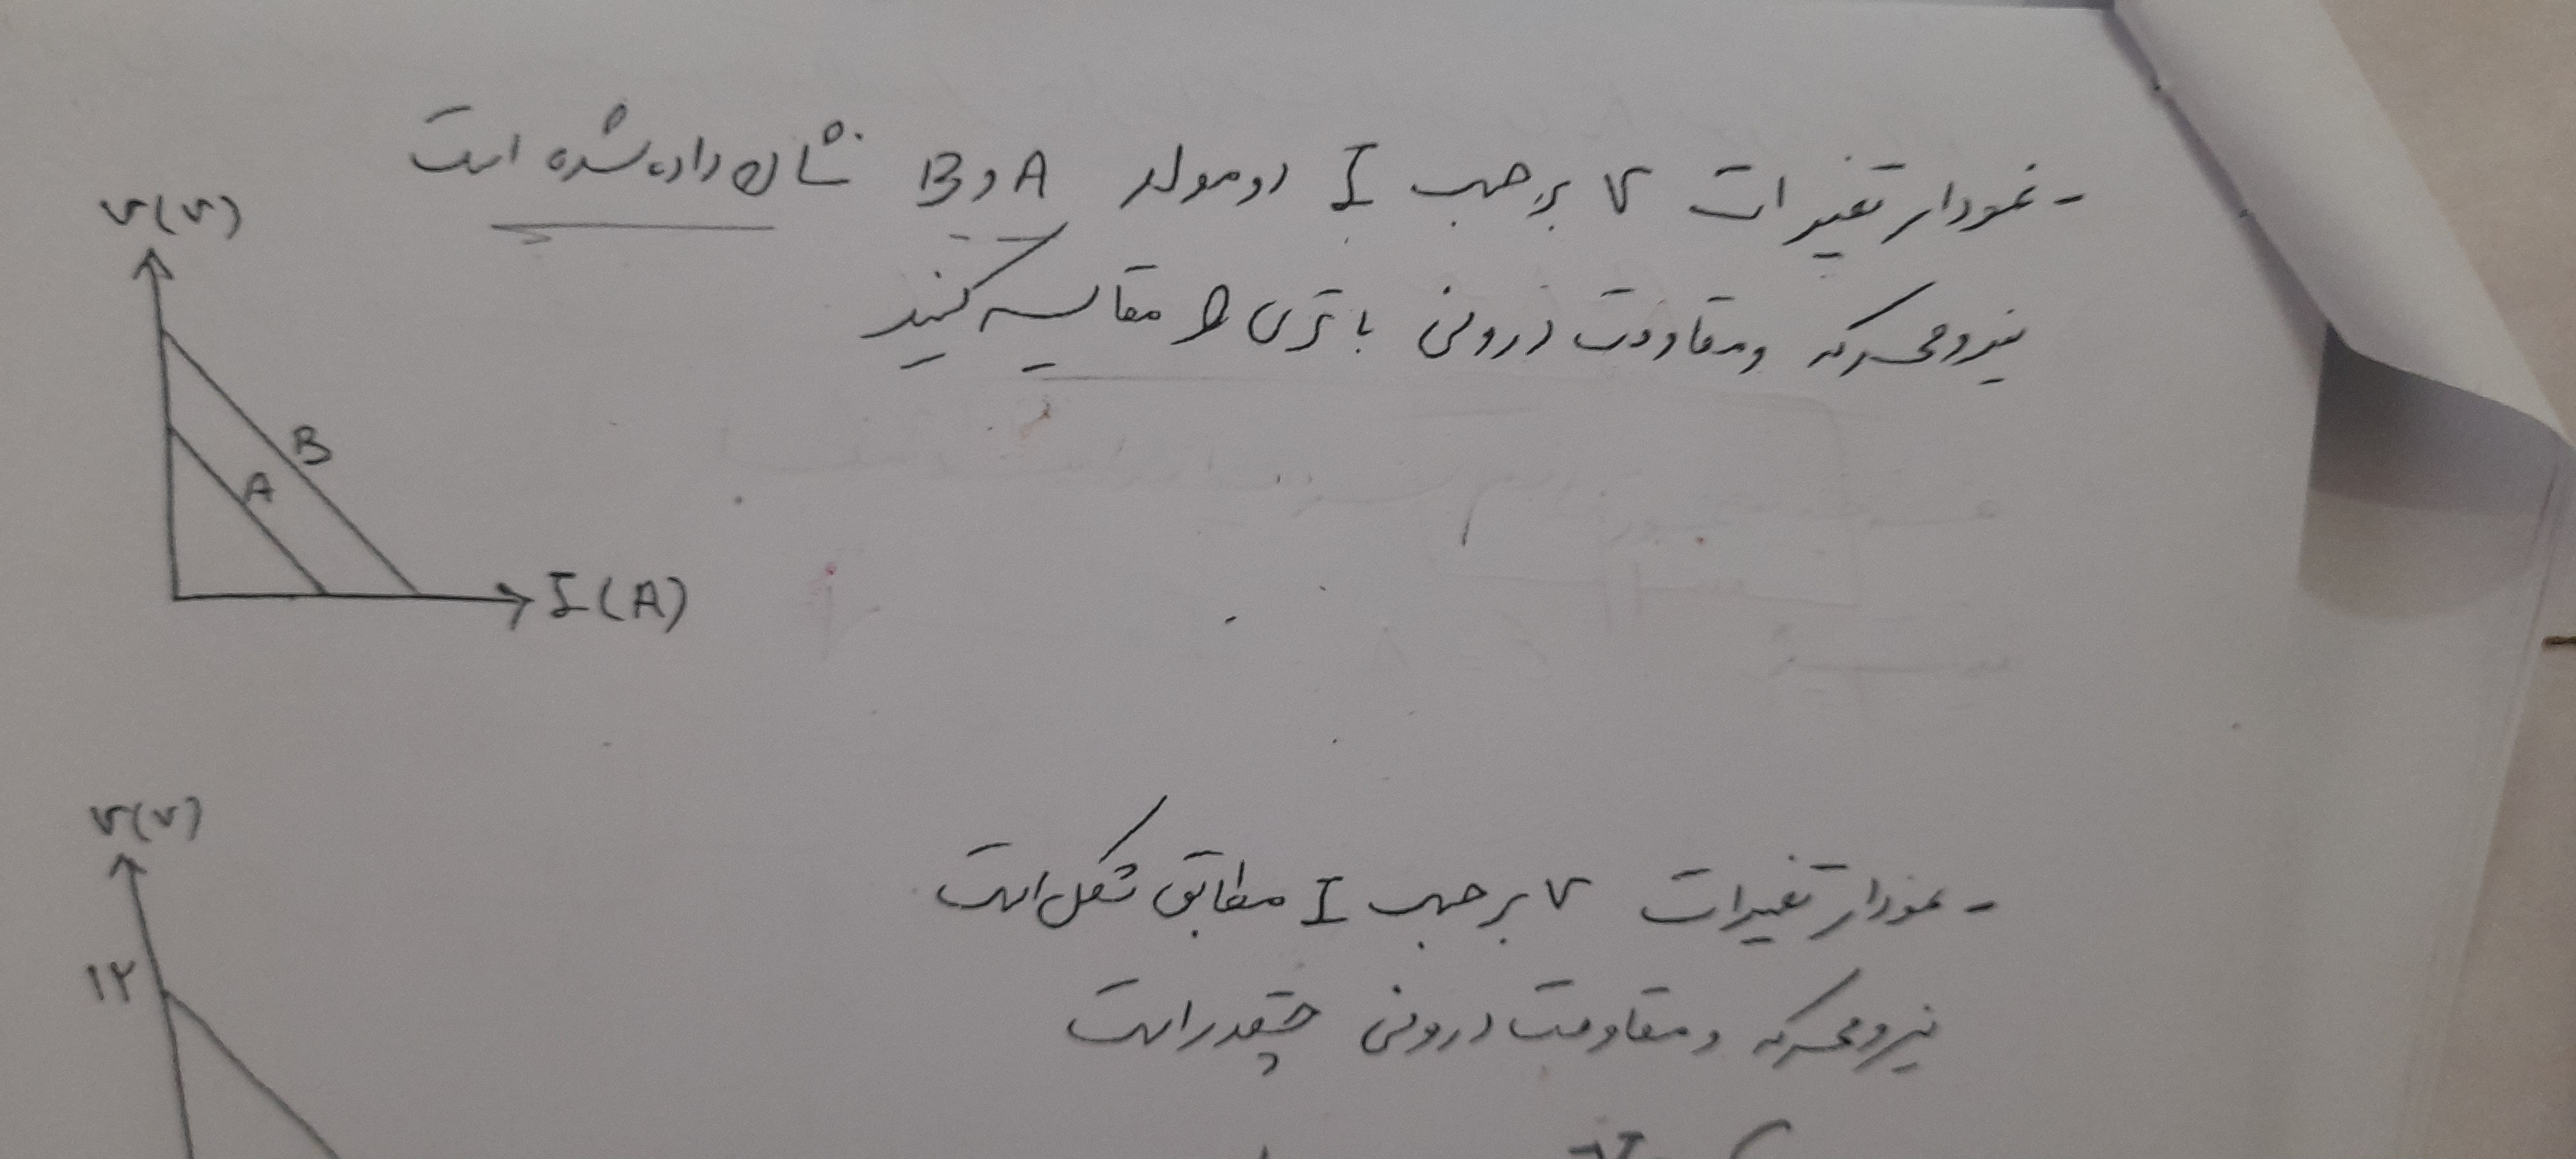 - نمودار تغییرات V برحسب I دو مولد A و B نشان داده شده است
نیرو محرکه و مقاومت درونی باتری ها مقایسه کنید
V(V)
B
A
I(A)
- نمودار تغییرات V برحسب I مطابق شکل است
نیرو محرکه و مقاومت درونی چقدر است
V(V)
۱۲